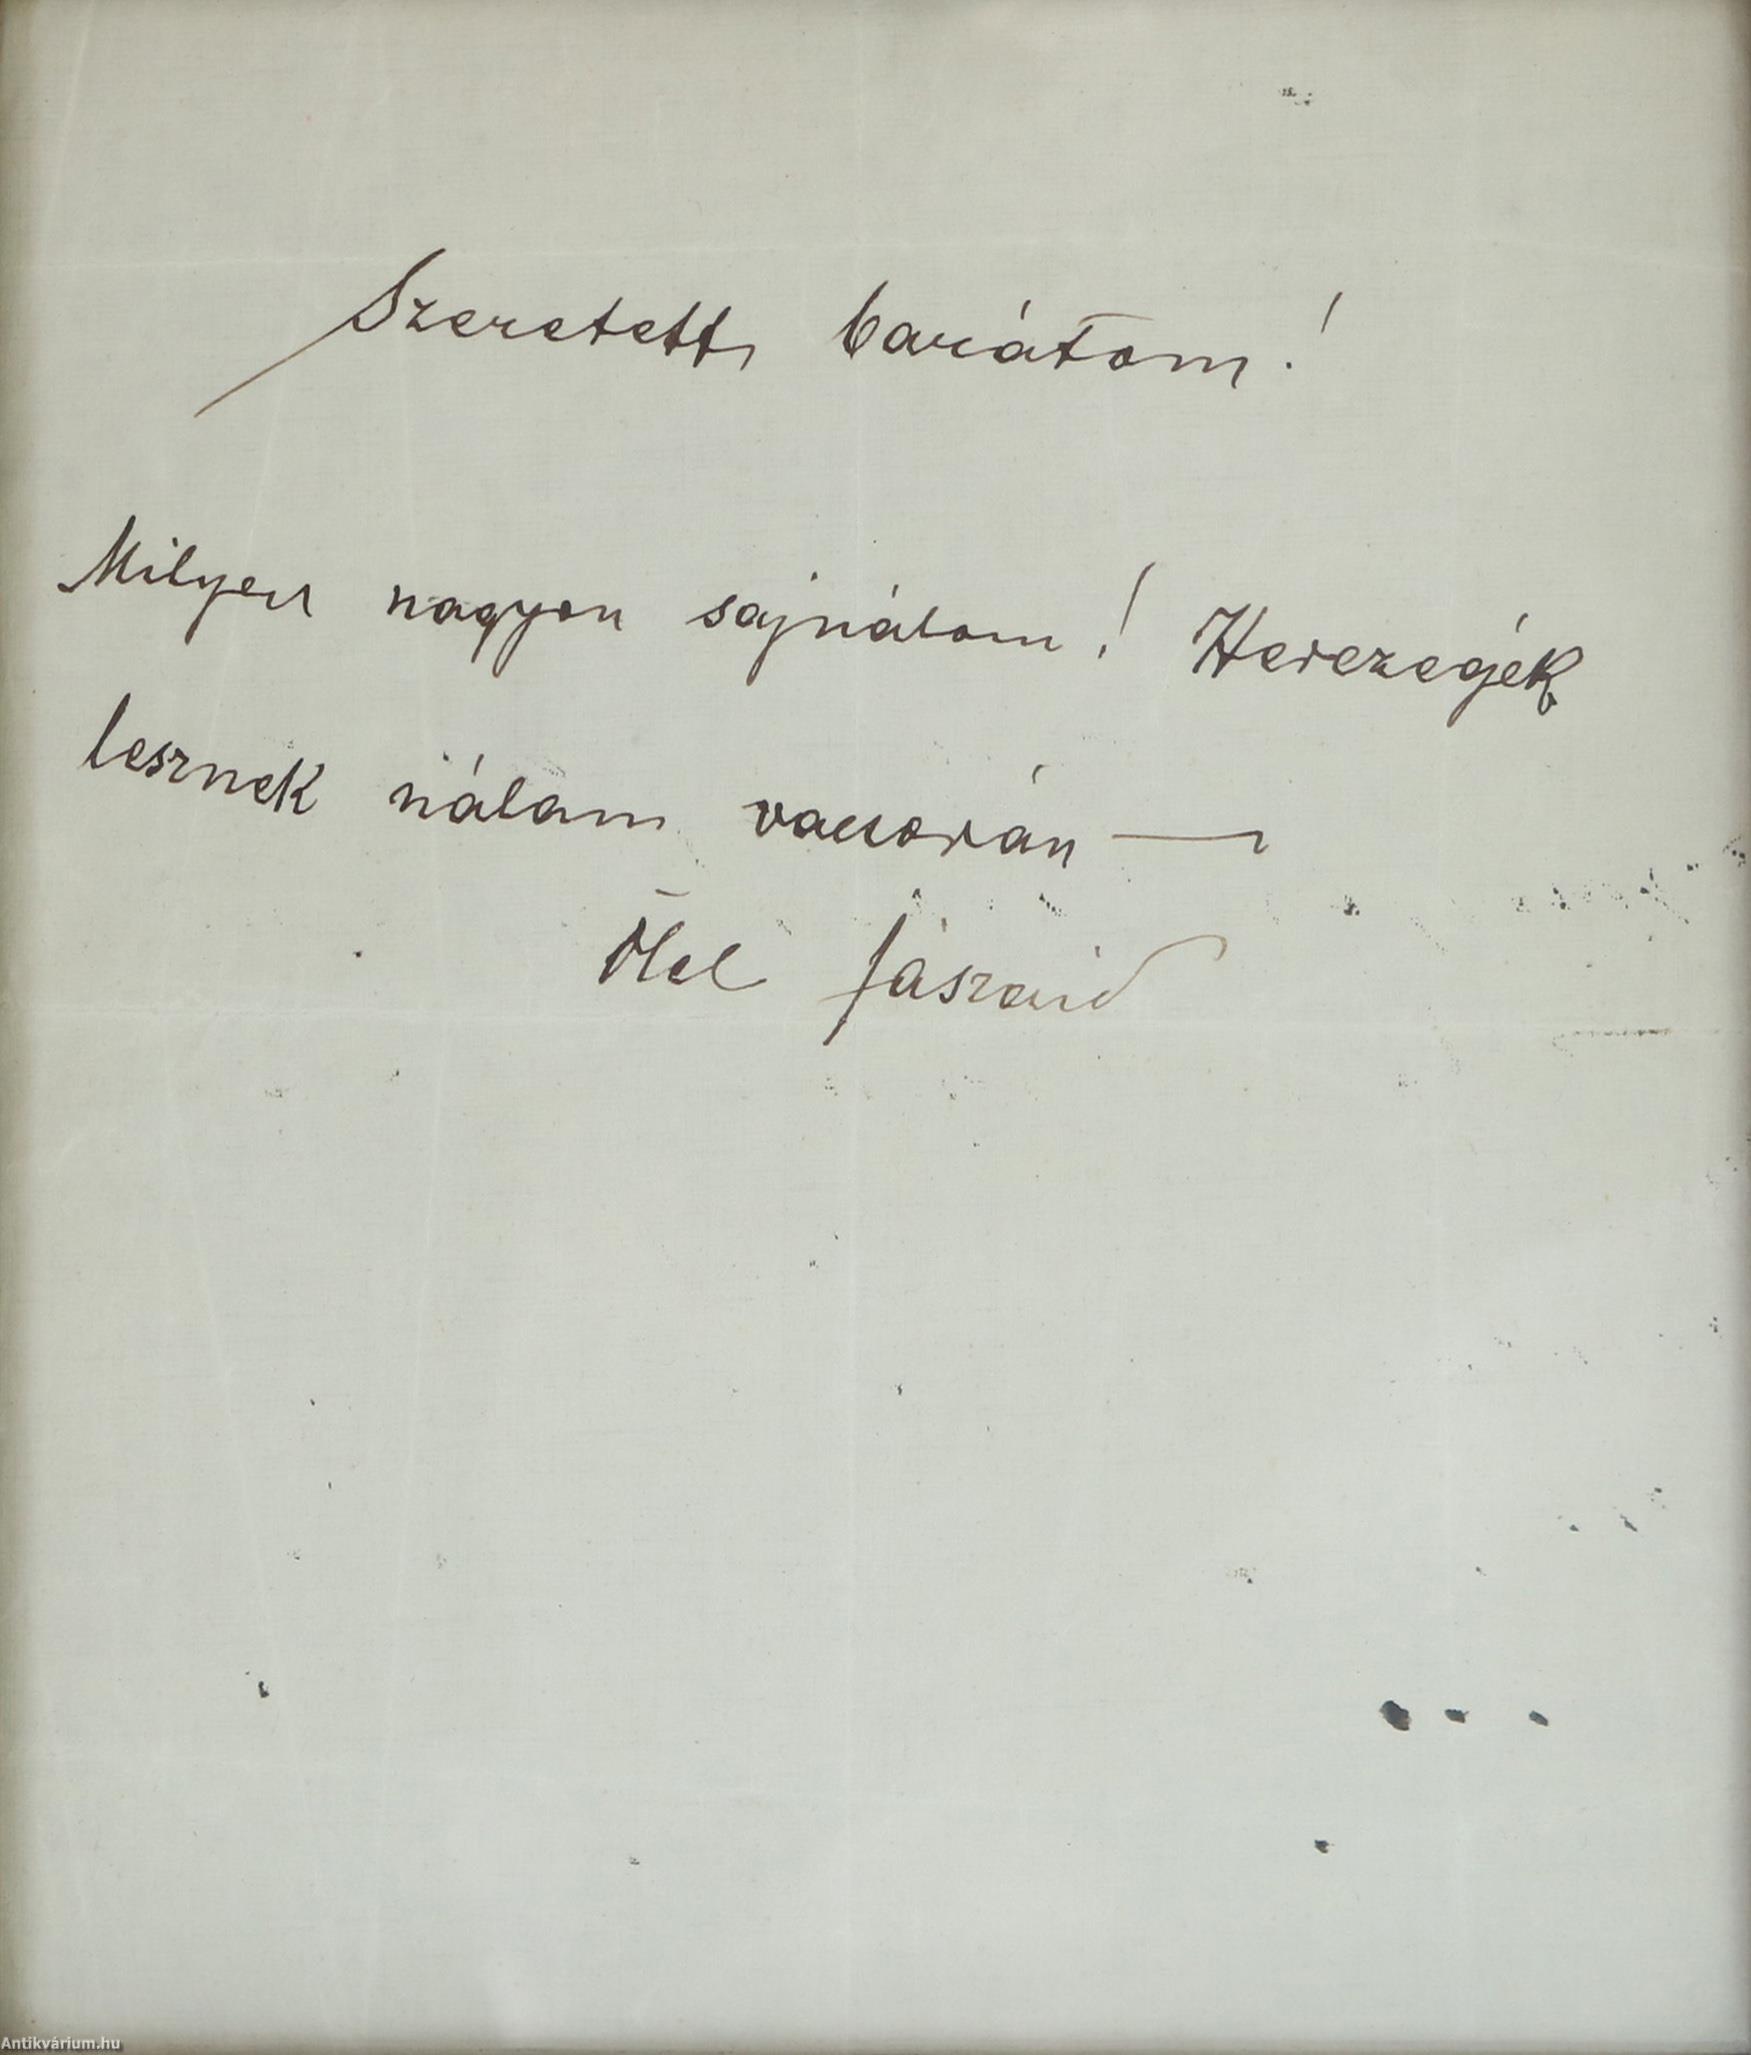 Szeretett barátom!
Milyen nagyon sajnálom! Herczegék
lesznek nálam vacsorán —
Ölel Jászaid
Antikvárium.hu